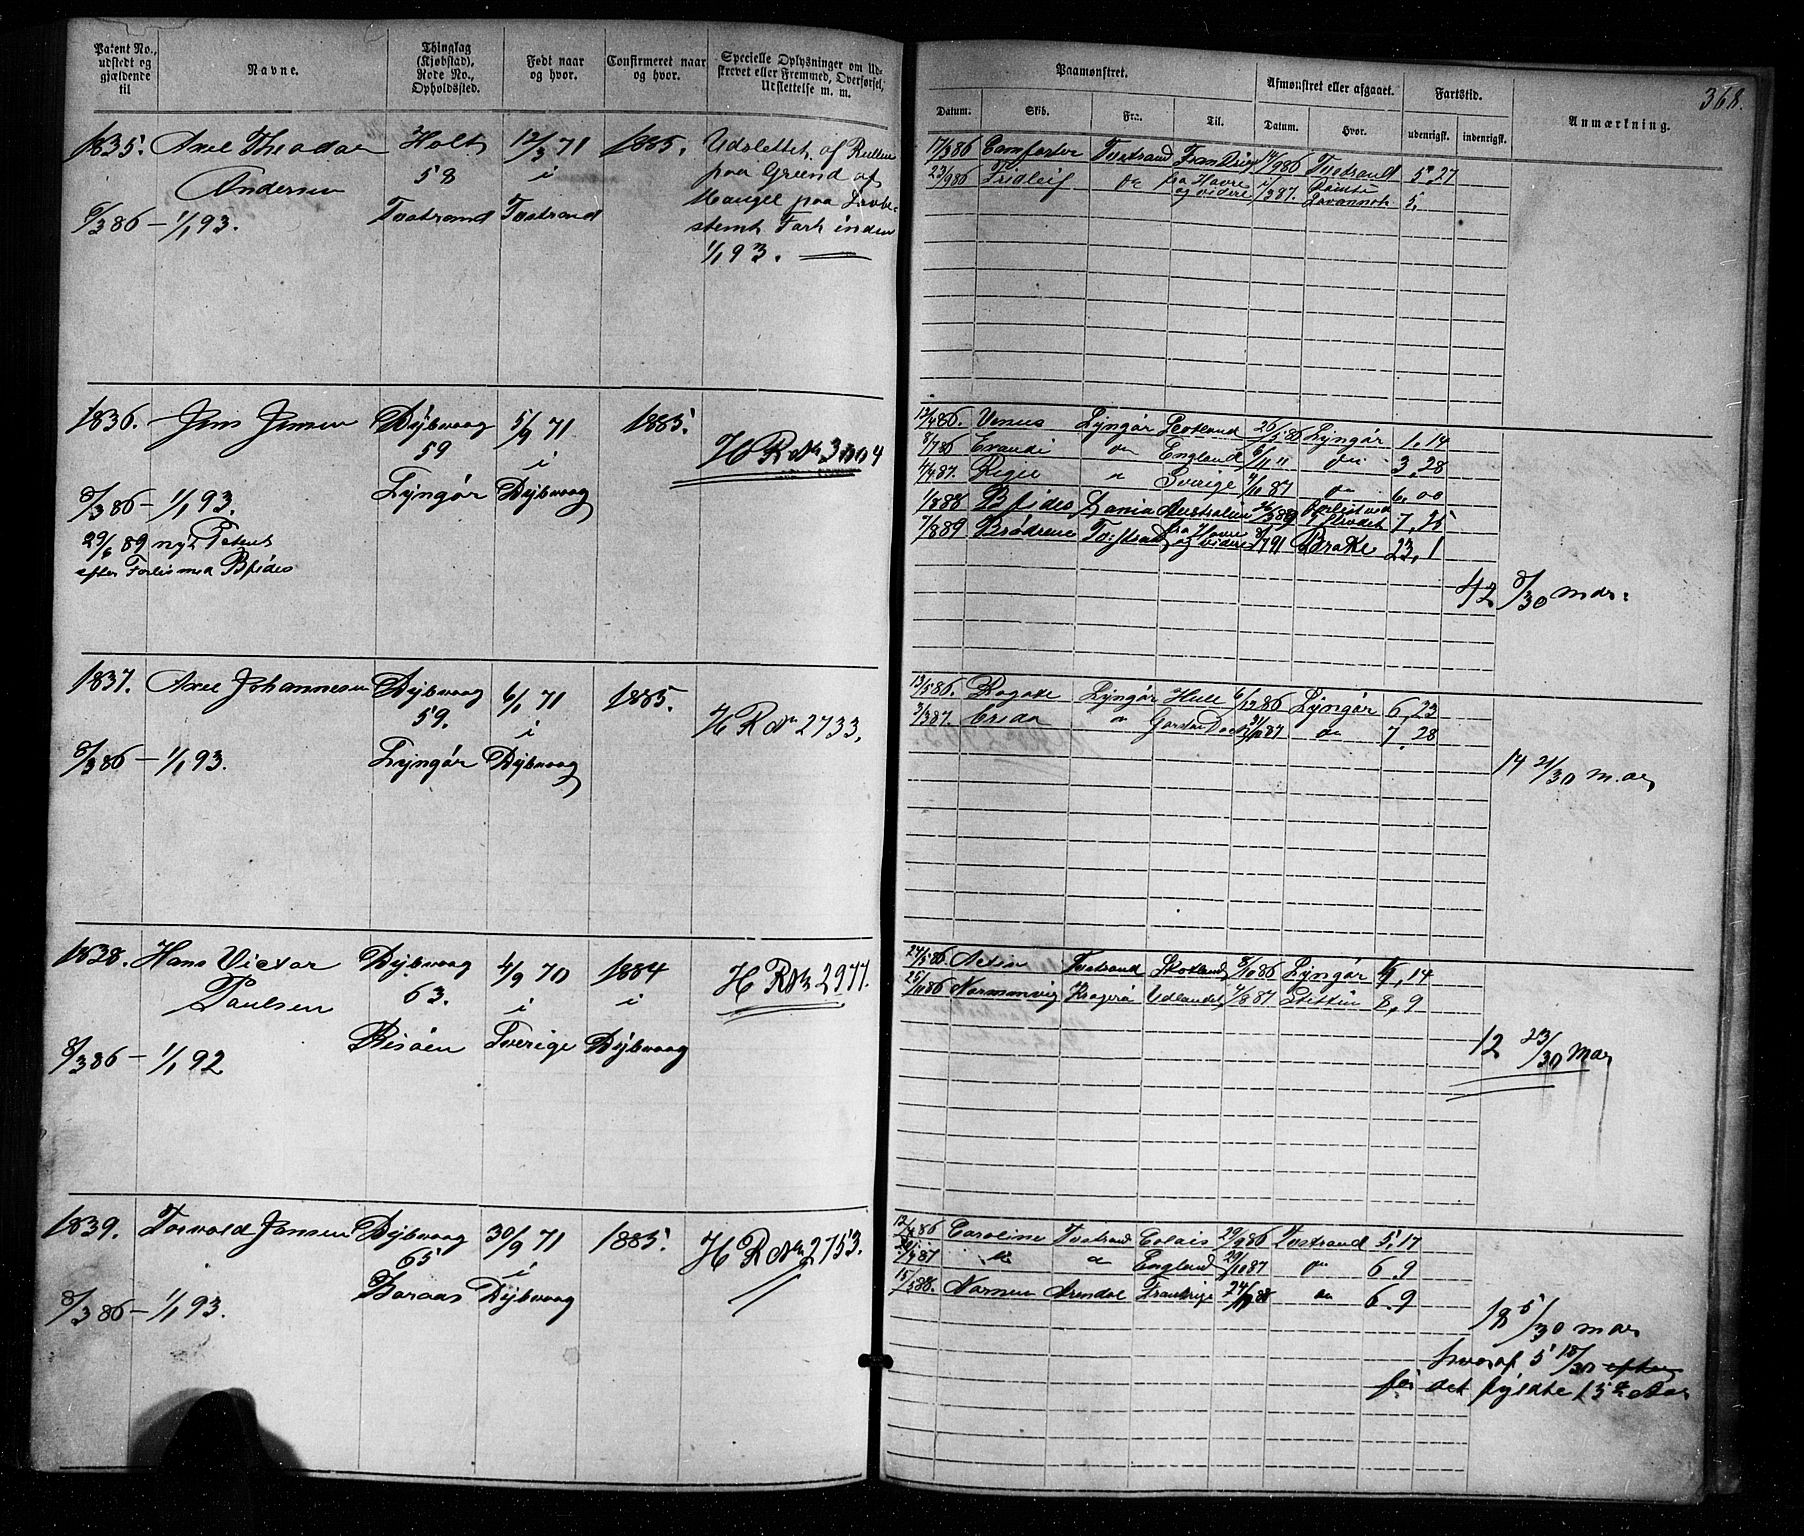 Patent No., udstedt og gjældende til
Navne.
Thinglag (Kjøbstad), Rode No., Opholdssted.
Født naar og hvor.
Confirmeret naar og hvor.
Specielle Oplysninger om Udskrevet eller Fremmed, Overførsel, Udslettelse m. m.
Paamønstret.
Afmønstret eller afgaaet.
Fartstid.
Anmærkning.
368.
Datum.
Skib.
Fra.
Til.
Datum.
Hvor.
udenrigsk.
indenrigsk.
1835. Axel Theodor Holt 12/3 71 1885. Udslettet af Rullen
Andersen 58 i paa Grund af
8/3 86 – 1/1 93. Tvedstrand Tvedstrand Mangel paa Lovbe-
stemt Fart inden
1/1 93.
17/3 86 Comforter Tvedstrand Frankrig 14/9 86 Tvedstrand 5. 27
23/9 86 Fridleif do fra Havre og videre 1/3 87. Savannah 5.
1836. Jens Jensen Dybvaag 5/9 71 1885.
59 i H R No 3004
Lyngør Dybvaag
8/3 86 – 1/1 93.
29/6 89 nyt Patent
efter Forlis med Bfides
12/4 86. Venus Lyngør Scotland 26/5 86 Lyngør 1. 14
8/7 86 do England 6/11 " do 3. 28
4/4 87. Sverige 4/10 87 do 6. 00
1/8 88 Bfides Australien Forlist ved 7. 25
7/8 89 Brødrene fra Havre og videre 91 Brake 23. 1
42 8/30 mdr.
1837. Axel Johannesen Dybvaag 6/1 71 1885.
59. i H R No 2733.
8/3 86 – 1/1 93. Lyngør Dybvaag
13/5 86. Lyngør Hull 6/12 86 Lyngør 6. 23
3/3 87. do 31/10 87 do 7. 28
14 21/30 mdr
1838. Hans Victor Dybvaag 4/9 70 1884
Paulsen 63. i i H R No 2977.
8/3 86 – 1/1 92 Risøen Sverige Dybvaag
24/5 86. Activ Tvedstrand Skotland 8/10 86 Lyngør 4. 14
25/11 86 Normanvig Kragerø Udlandet 4/8 87 Stettin 8. 9
12 23/30 mdr
1839. Torvald Jensen Dybvaag 30/9 71 1885. H R No 2753.
65 i
8/3 86 – 1/1 93. Boraas Dybvaag
12/4 86 Caroline Tvedstrand Calais 29/9 86 Tvedstrand 5. 17
87 do do England 29/10 87 do 6. 9
15/5 88. Nornen Arendal Frankrige 24/11 88 do 6. 9
18 5/30 mdr
hvoraf 5 18/30 efter
før det fyldte 15de Aar